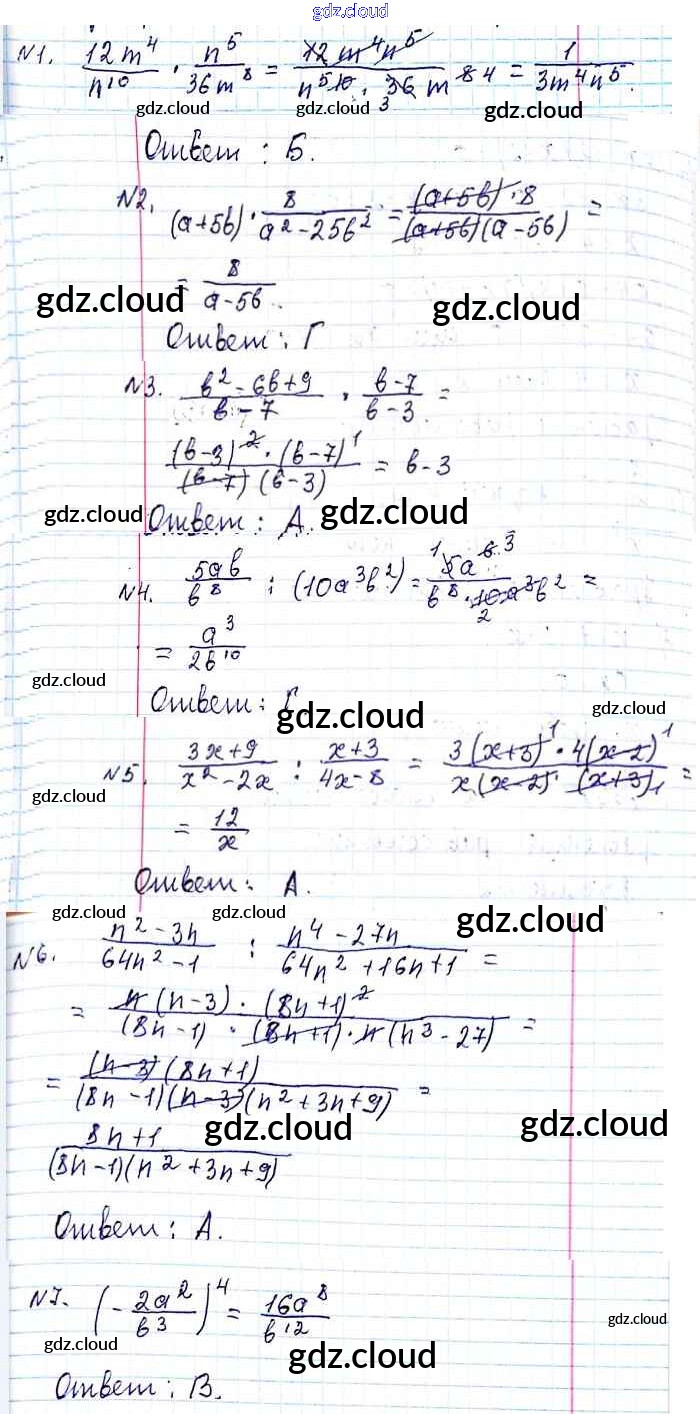 gdz.cloud
N1. 12m⁴/n¹⁰ · n⁵/36m⁸ = 12m⁴n⁵/(n⁵ 10 · 36 3 m 8 4) = 1/(3m⁴n⁵).
gdz.cloud gdz.cloud
Ответ: Б.
N2. (a+5b) · 8/(a²-25b²) = (a+5b)·8/((a+5b)(a-5b)) =
= 8/(a-5b).
gdz.cloud gdz.cloud
Ответ: Г
N3. (b²-6b+9)/(b-7) · (b-7)/(b-3) =
(b-3)²·(b-7)¹/((b-7)(b-3)) = b-3
gdz.cloud Ответ: А. gdz.cloud
N4. 5ab/b⁸ : (10a³b²) =
= a³/2b¹⁰
gdz.cloud
Ответ: Г gdz.cloud gdz.cloud
N5. (3x+9)/(x²-2x) : (x+3)/(4x-8) = 3(x+3)¹·4(x-2)¹/(x(x-2)¹(x+3)₁) =
gdz.cloud
= 12/x
Ответ: А.
gdz.cloud gdz.cloud gdz.cloud
N6. (n²-3n)/(64n²-1) : (n⁴-27n)/(64n²+16n+1) =
= n(n-3)·(8n+1)²/((8n-1)·(8n+1)·n(n³-27)) =
= (n-3)(8n+1)/((8n-1)(n-3)(n²+3n+9)) =
gdz.cloud gdz.cloud
(8n+1)/((8n-1)(n²+3n+9))
Ответ: А.
N7. (-2a²/b³)⁴ = 16a⁸/b¹²
gdz.cloud gdz.cloud gdz.cloud
Ответ: В.